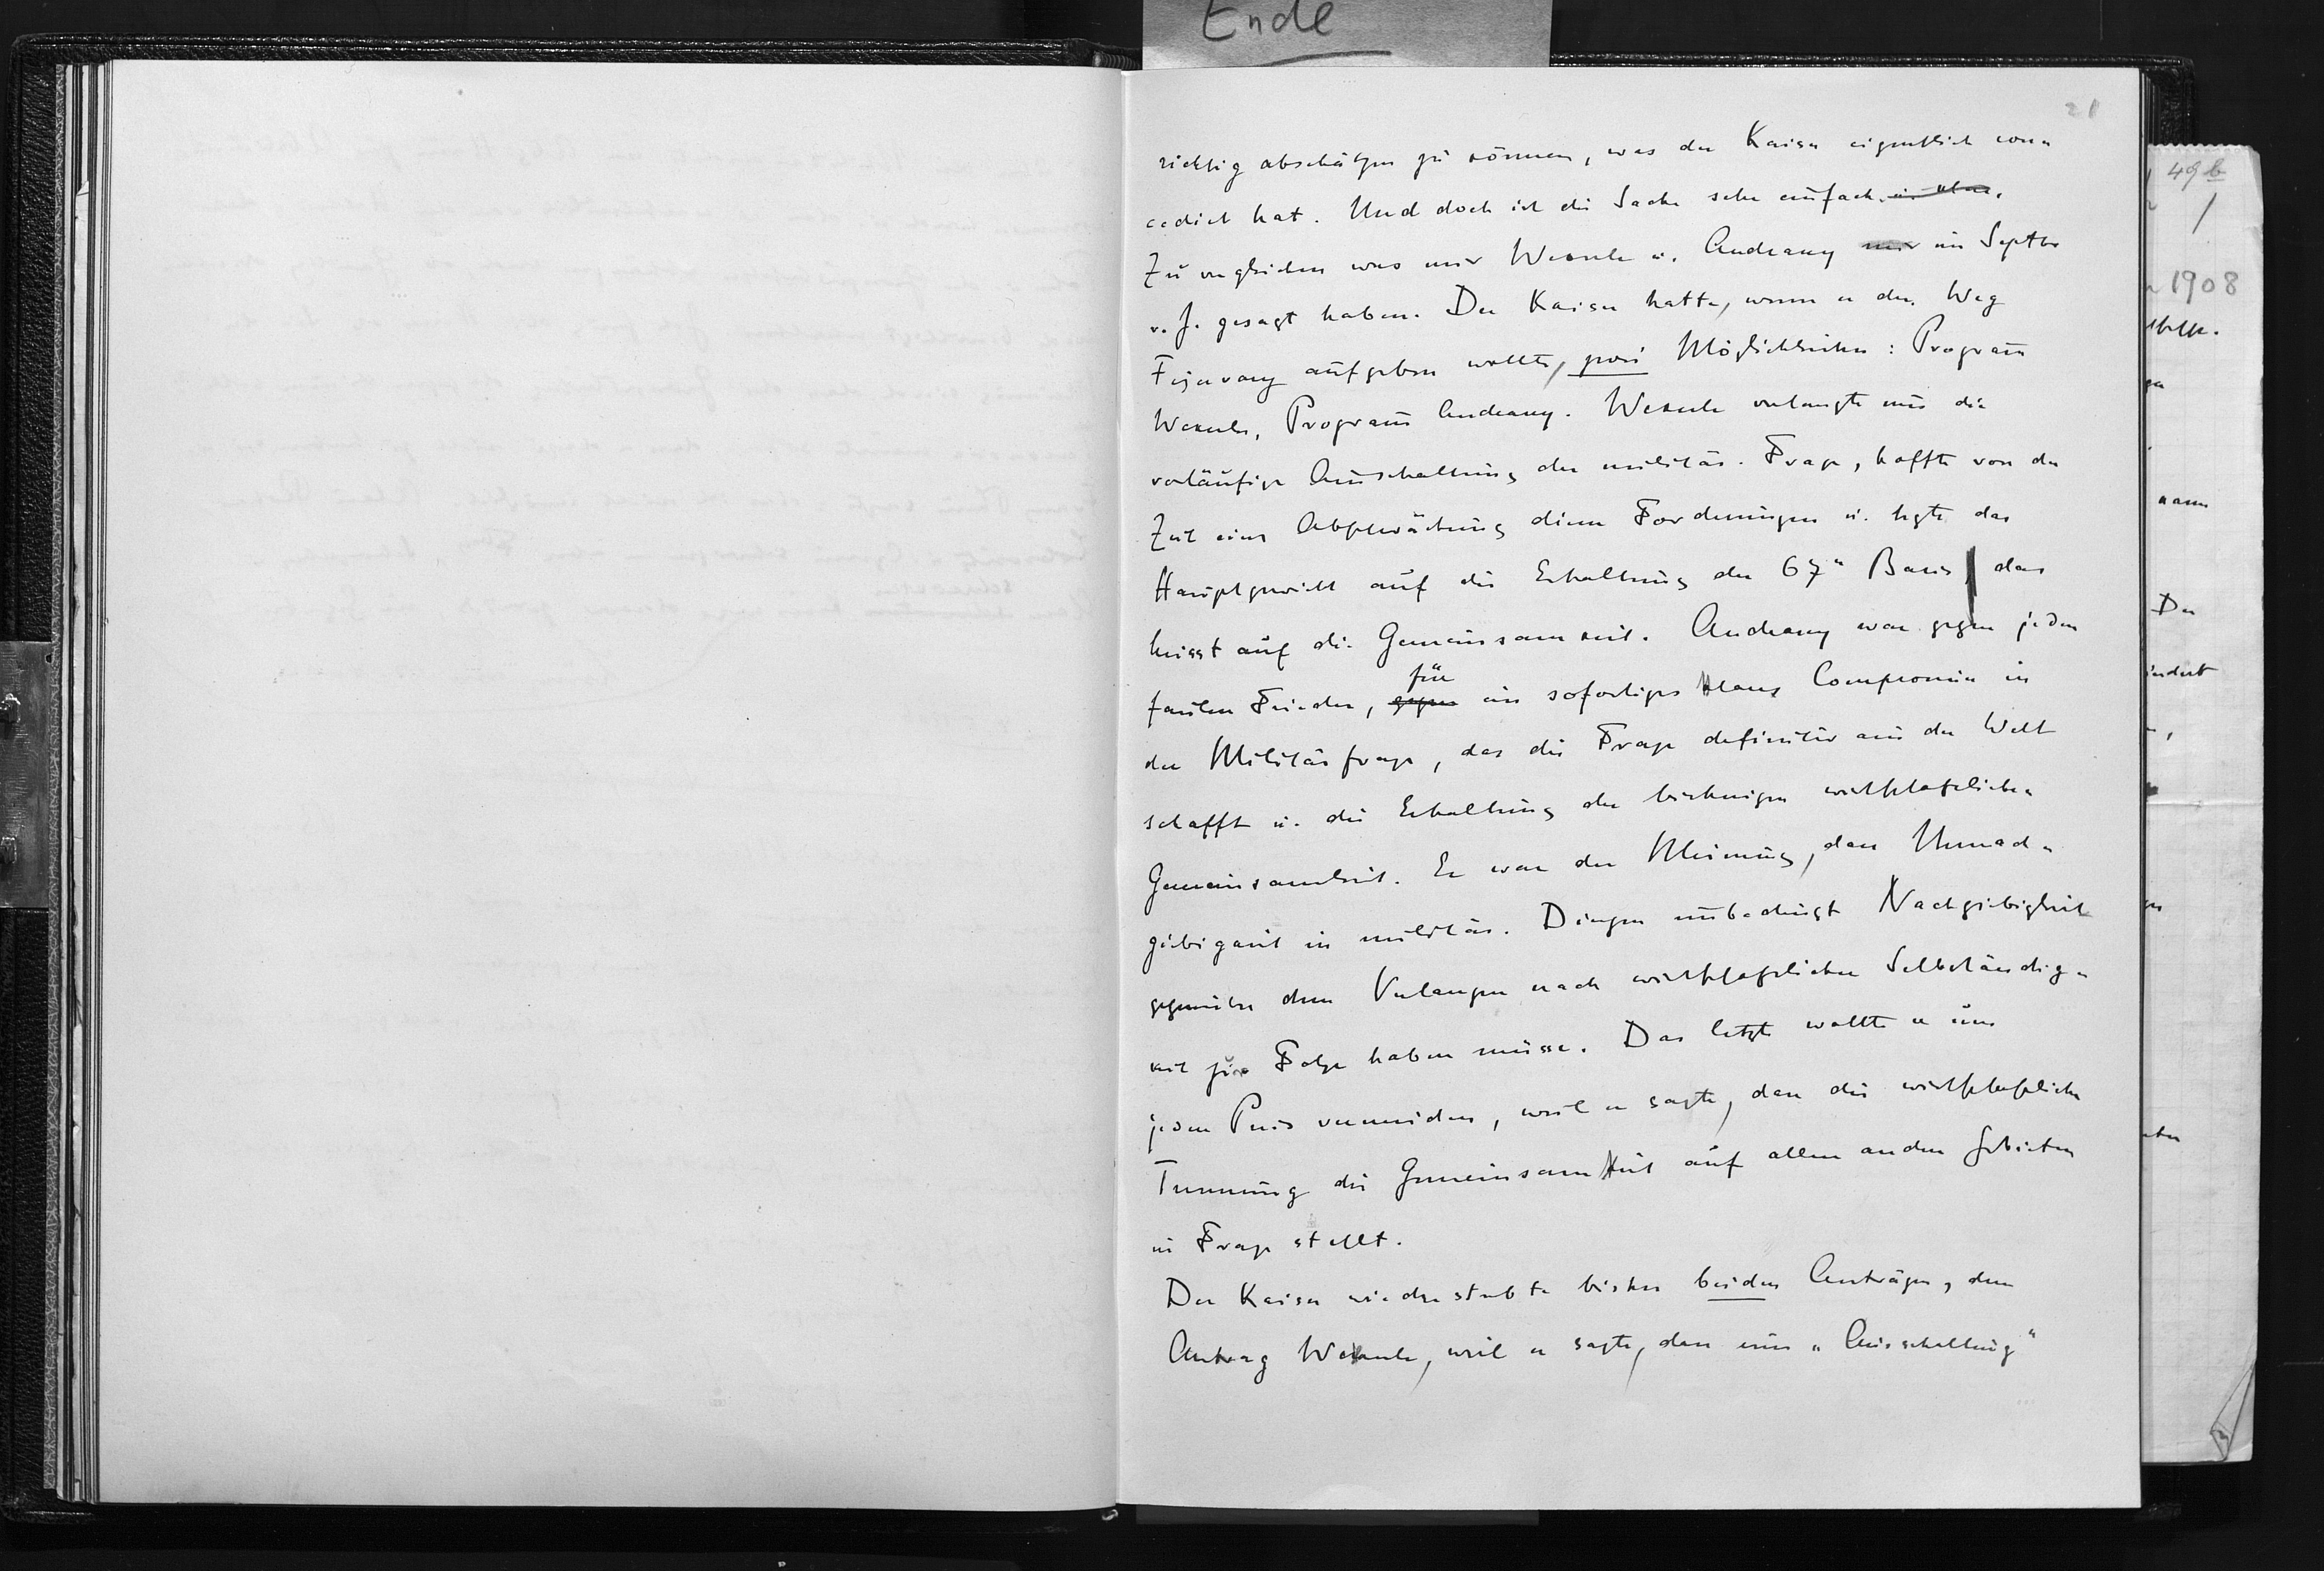 Ende
21
richtig abschätzen zu können, was der Kaiser eigentlich con„
cedirt hat. Und doch ist die Sache sehr einfach.
Zu vergleichen was mir Wekerle u. Andrassy mir im Septbr
v. J. gesagt haben. Der Kaiser hatte, wenn er den Weg
Fejervary aufgeben wollte, zwei Möglichkeiten: Program̄
Wekerle, Program̄ Andrassy. Wekerle verlangte nur die
vorläufige Ausschaltung der militär. Frage, hoffte von der
Zeit eine Abschwächung dieser Forderungen u. legte das
Hauptgewicht auf die Erhaltung der 67er Basis, das
heisst auf die Gemeinsamkeit. Andrassy war gegen jeden
für
faulen Frieden, gegen ein sofortiges klares Compromiss in
der Militärfrage, das die Frage definitiv aus der Welt
schafft u. die Erhaltung der bisherigen wirthschaftlichen
Gemeinsamkeit. Er war der Meinung, dass Unnach„
giebigkeit in militär. Dingen unbedingt Nachgiebigkeit
gegenüber dem Verlangen nach wirthschaftlicher Selbständig„
keit zur Folge haben müsse. Das letzte wollte er um
jeden Preis vermeiden, weil er sagte, dass die wirthschaftliche
Trennung die Gemeinsamkeit auf allen anderen Gebieten
in Frage stellt.
Der Kaiser wiederstrebte bisher beiden Anträgen, dem
Antrag Wekerle, weil er sagte, dass eine „Ausschaltung"
49b
1908
kann
Der
indert